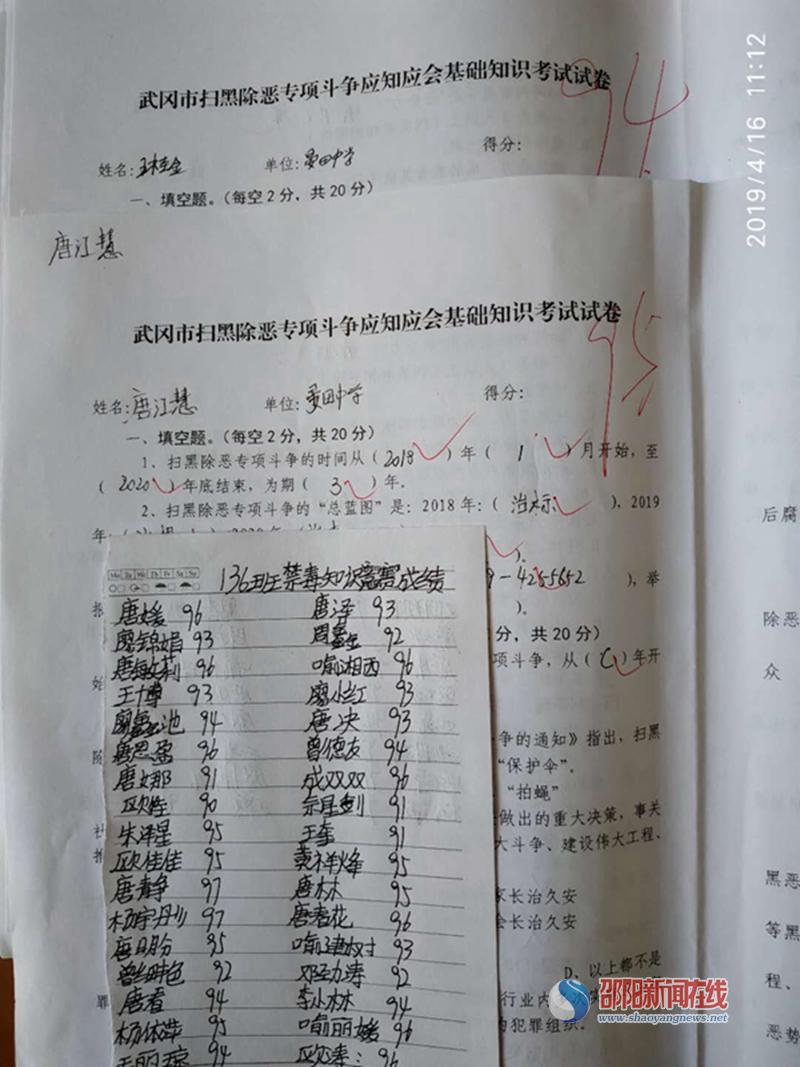 2019/4/16 11:12
武冈市扫黑除恶专项斗争应知应会基础知识考试试卷
94
姓名: 单位:晏田中学 得分:
一、填空题。(每空2分，共20分)
唐江慧
武冈市扫黑除恶专项斗争应知应会基础知识考试试卷
95
姓名:唐江慧 单位:晏田中学 得分:
一、填空题。(每空2分，共20分)
1、扫黑除恶专项斗争的时间从(2018)年(1)月开始，至
(2020)年底结束，为期(3)年。
2、扫黑除恶专项斗争的“总蓝图”是：2018年：(治标)，2019
年
)。
-4255652 )，举
)。
分，共20分)
项斗争，从(C)年开
始
争的通知》指出，扫黑
“保护伞”。
“拍蝇”
做出的重大决策，事关
大斗争、建设伟大工程、
家长治久安
会长治久安
D、以上都不是
罪 行业内
的犯罪组织。
136班禁毒知识竞赛成绩
唐媛 96 唐泽 93
廖锦娟 93 周 92
唐 莉 96 喻湘西 96
王博 93 廖小红 93
廖 池 94 唐决 93
唐思 96 曾德友 94
唐娜 91 成双双 96
欧 90 剑 91
朱泽星 95 王 91
欧佳佳 95 黄祥烽 95
唐静 97 唐林 95
杨宇 97 唐春花 96
唐 95 喻建树 93
曾 92 邓 涛 92
唐看 94 李小林 94
杨依萍 95 喻丽媛 96
王丽琼 94 欧 96
后腐
除恶
众
黑恶
等黑
程、
恶势
邵阳新闻在线
www.shaoyangnews.net